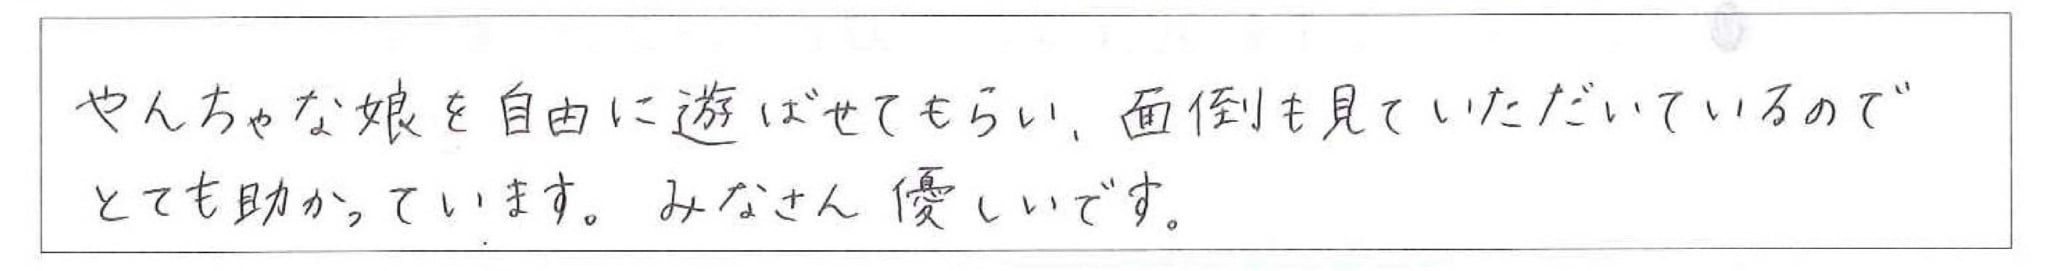 やんちゃな娘を自由に遊ばせてもらい、面倒も見ていただいているので
とても助かっています。 みなさん優しいです。